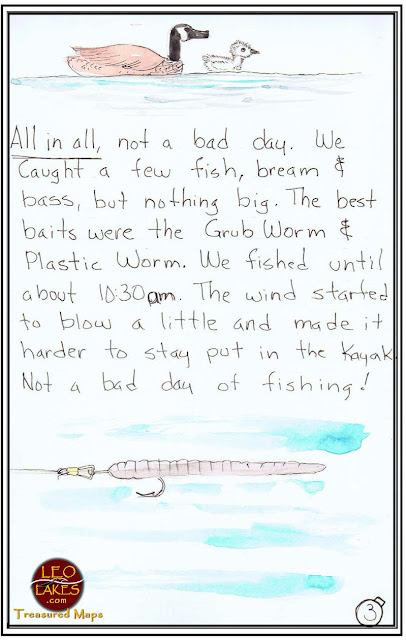 All in all, not a bad day. We
Caught a few fish, bream &
bass, but nothing big. The best
baits were the Grub Worm &
Plastic Worm. We fished until
about 10:30am. The wind started
to blow a little and made it
harder to stay put in the Kayak.
Not a bad day of fishing!
LEO
LAKES
.com
Treasured Maps
3